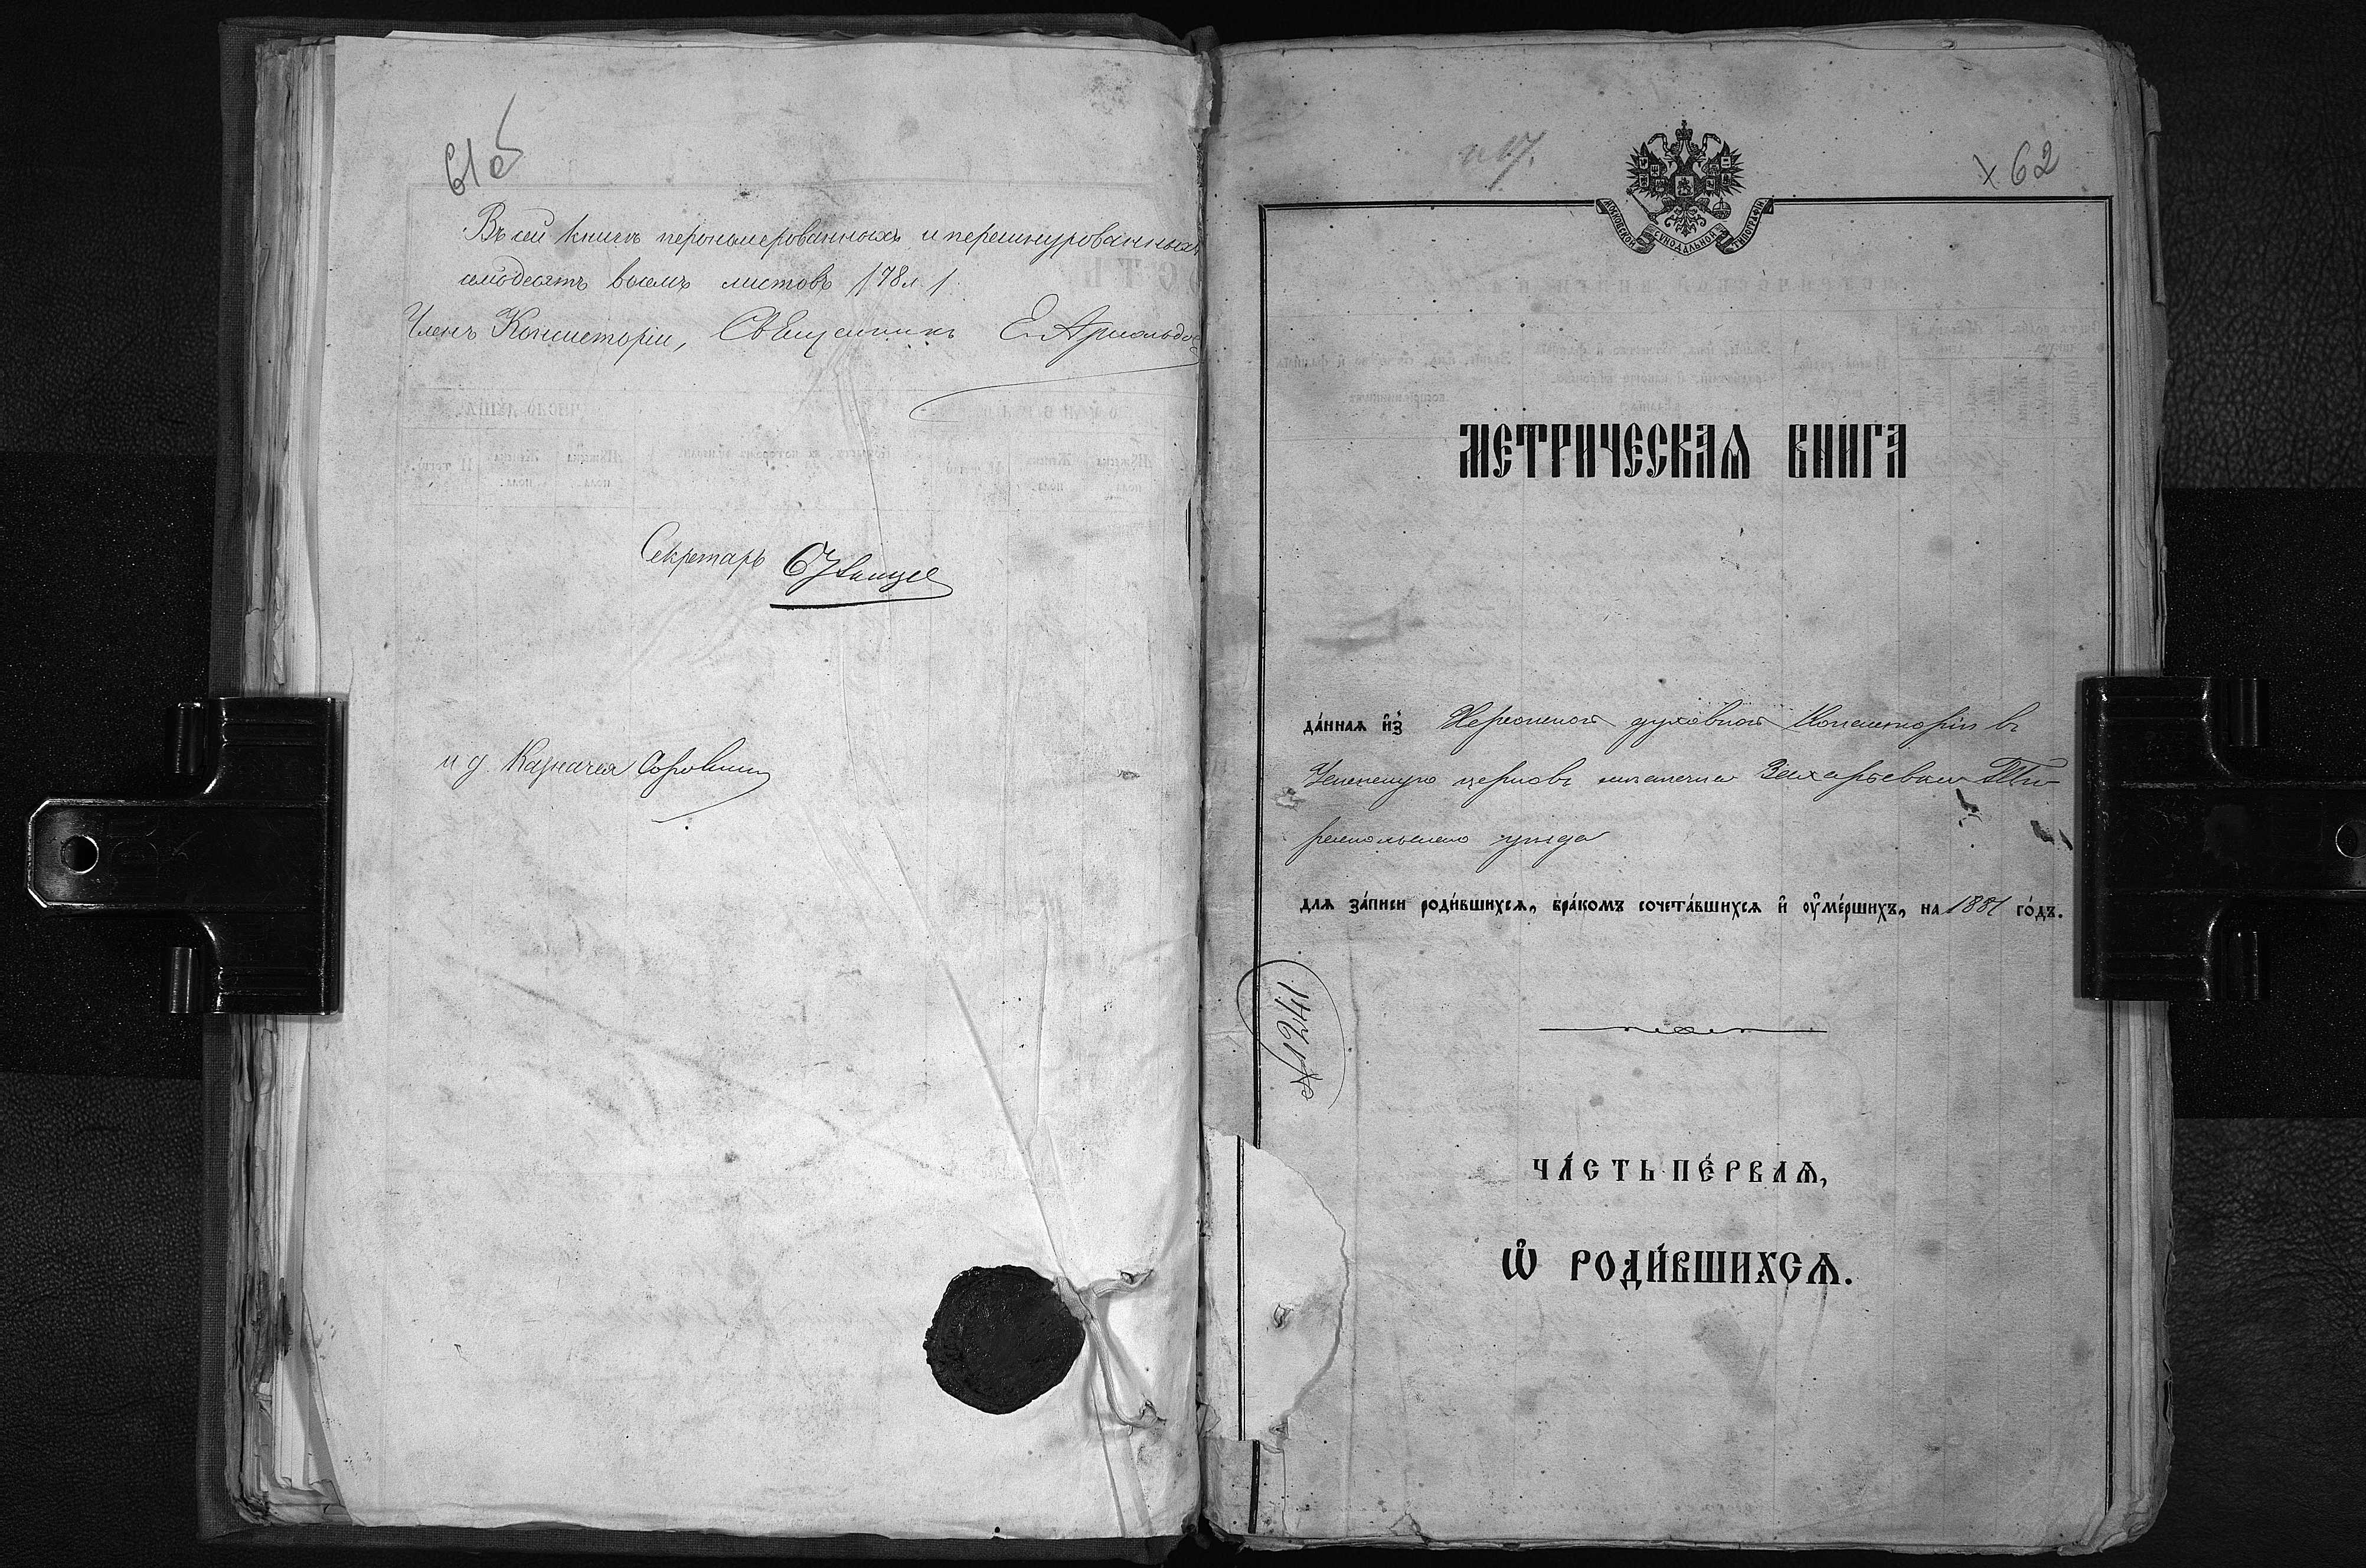 61об
Въ сей книгѣ перономерованныхъ и перешнурованныхъ
семьдесятъ восемь листовъ /78л./
Членъ Консисторіи, Священникъ Е. Арнольдо
Секретарь
и д. Казначея
п 17.
х 62
МОСКОВСКОЙ СѴНОДАЛЬНОЙ ТИПОГРАФІИ
МЕТРИЧЕСКАѦ КНИГА
да́ннаѧ и҆з̾ Херсонской духовной Консисторіи въ
Успенскую церковь мѣстечка Захарьевки Ти
распольскаго уѣзда
длѧ за́писи роди́вшихсѧ, бра́комъ сочета́вшихсѧ и҆ ᲂу҆ме́ршихъ, на 1881 го́дъ.
№ 1241
ЧА́СТЬ ПЕ́РВАѦ,
Ѽ РОДИ́ВШИХСѦ.